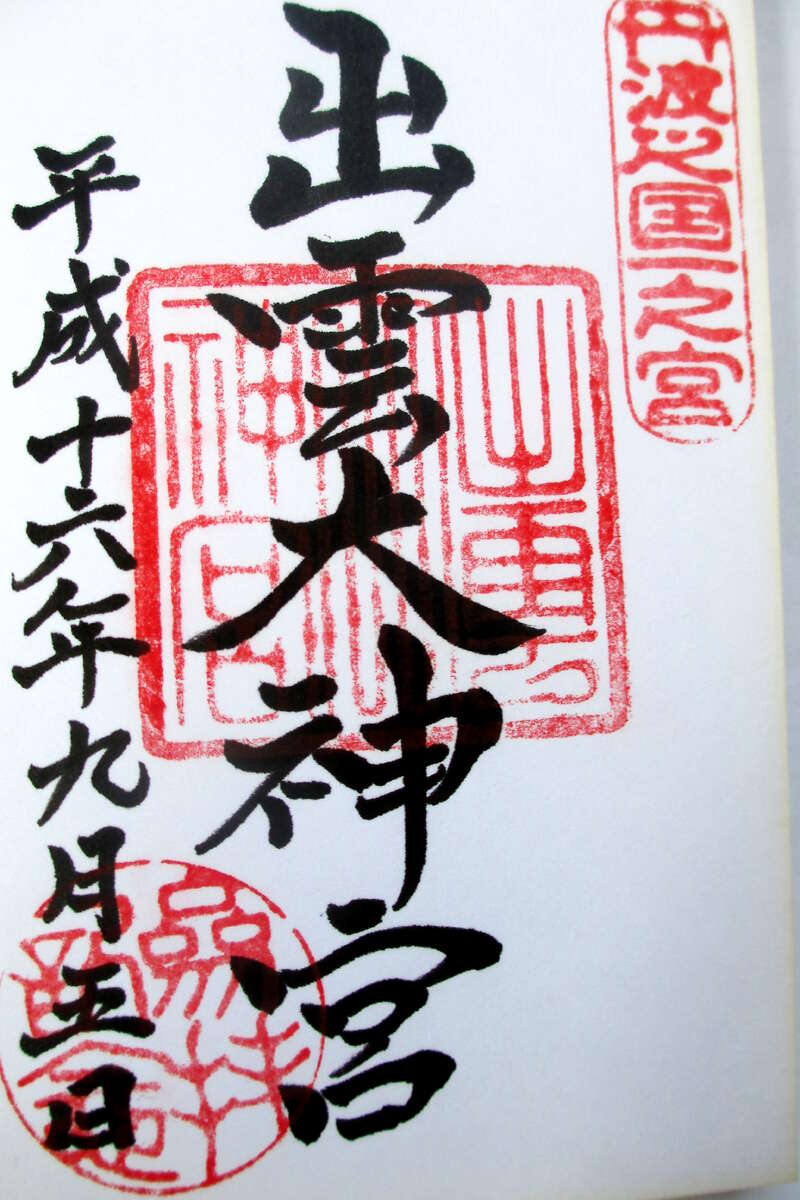 丹波之国一之宮
出雲大神宮
平成十六年九月五日